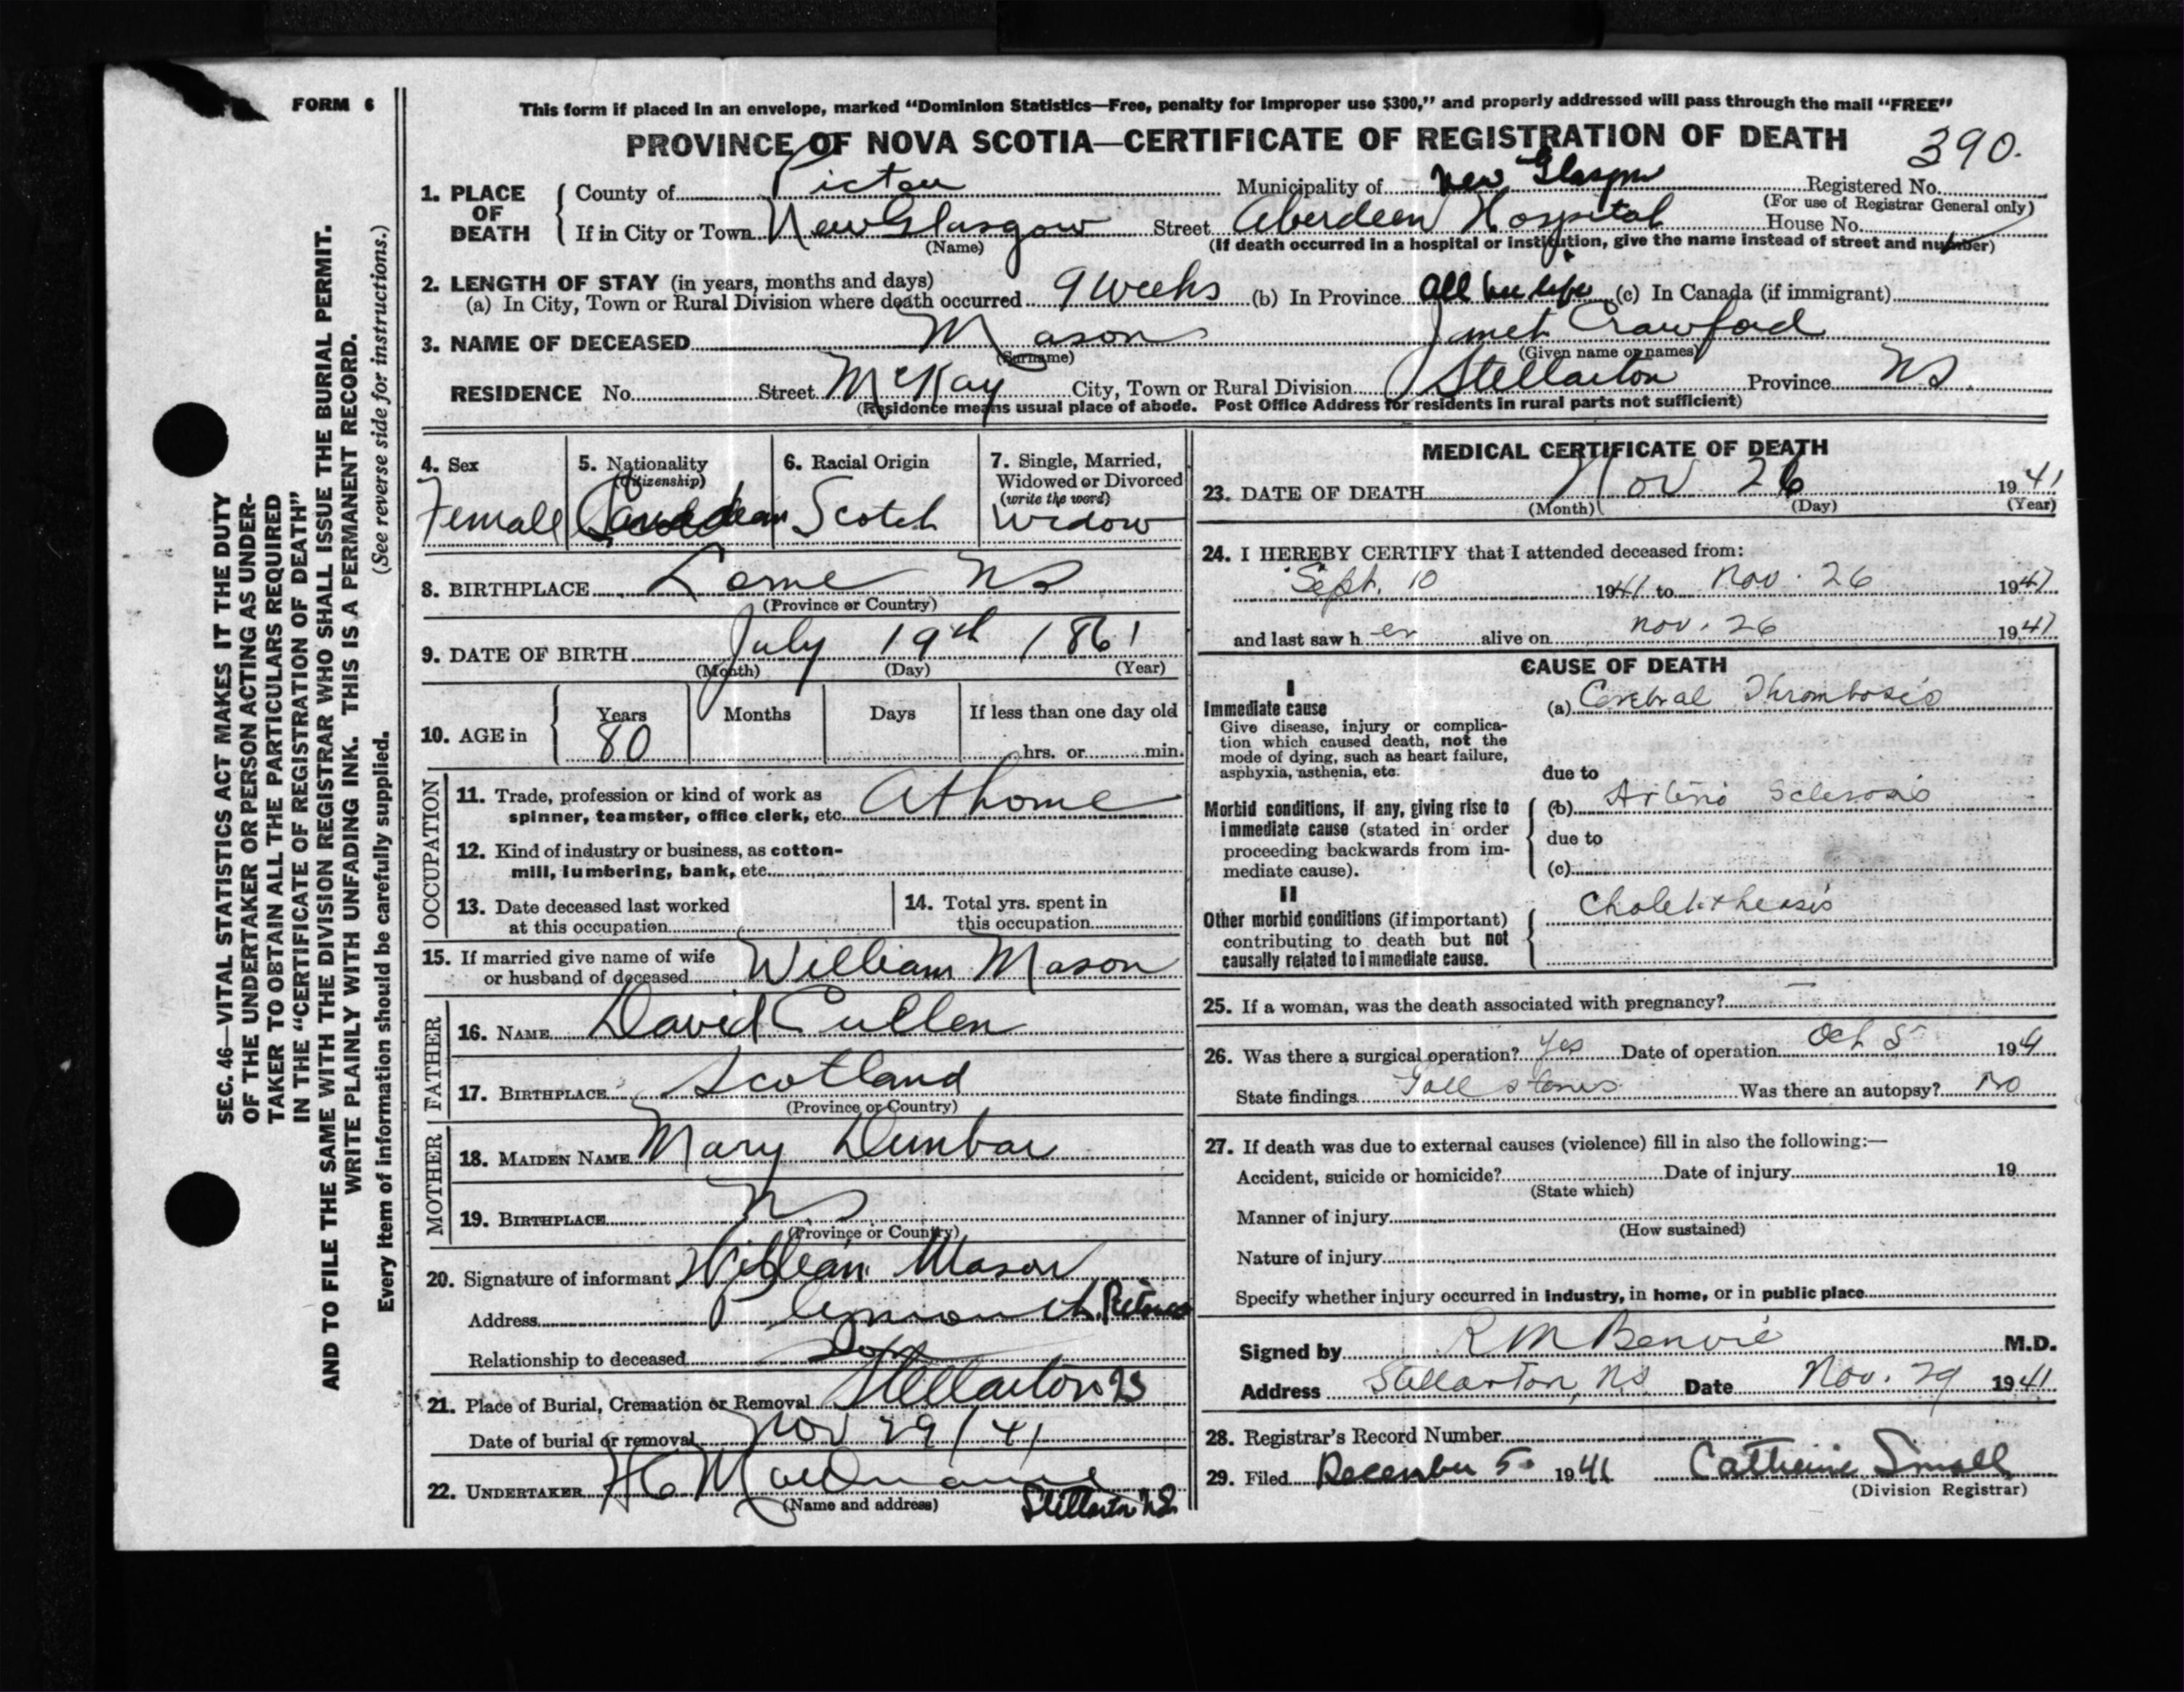 FORM 6
This form if placed in an envelope, marked “Dominion Statistics—Free, penalty for improper use $300,” and properly addressed will pass through the mail “FREE”
PROVINCE OF NOVA SCOTIA—CERTIFICATE OF REGISTRATION OF DEATH
390.
1. PLACE OF DEATH { County of Pictou Municipality of New Glasgow Registered No.
(For use of Registrar General only)
If in City or Town New Glasgow Street Aberdeen Hospital House No.
(Name) (If death occurred in a hospital or institution, give the name instead of street and number)
2. LENGTH OF STAY (in years, months and days)
(a) In City, Town or Rural Division where death occurred 9 weeks (b) In Province all her life (c) In Canada (if immigrant)
3. NAME OF DECEASED Mason Janet Crawford
(Surname) (Given name or names)
RESIDENCE No. Street McKay City, Town or Rural Division Stellarton Province NS.
(Residence means usual place of abode. Post Office Address for residents in rural parts not sufficient)
4. Sex
Female
5. Nationality
(Citizenship)
Canadian
6. Racial Origin
Scotch
7. Single, Married,
Widowed or Divorced
(write the word)
Widow
8. BIRTHPLACE Lorne NS
(Province or Country)
9. DATE OF BIRTH July 19th 1861
(Month) (Day) (Year)
10. AGE in { Years Months Days If less than one day old
80 hrs. or min.
OCCUPATION
11. Trade, profession or kind of work as
spinner, teamster, office clerk, etc. At home
12. Kind of industry or business, as cotton-
mill, lumbering, bank, etc.
13. Date deceased last worked
at this occupation
14. Total yrs. spent in
this occupation
15. If married give name of wife
or husband of deceased William Mason
FATHER
16. NAME David Cullen
17. BIRTHPLACE Scotland
(Province or Country)
MOTHER
18. MAIDEN NAME Mary Dunbar
19. BIRTHPLACE NS
(Province or Country)
20. Signature of informant William Mason
Address Plymouth, Pictou
Relationship to deceased Son
21. Place of Burial, Cremation or Removal Stellarton NS
Date of burial or removal Nov 29/41
22. UNDERTAKER H C
(Name and address) Stellarton N.S.
MEDICAL CERTIFICATE OF DEATH
23. DATE OF DEATH Nov 26 1941
(Month) (Day) (Year)
24. I HEREBY CERTIFY that I attended deceased from:
Sept. 10 1941 to Nov. 26 1941
and last saw her alive on Nov. 26 1941
CAUSE OF DEATH
I
Immediate cause
Give disease, injury or complica-
tion which caused death, not the
mode of dying, such as heart failure,
asphyxia, asthenia, etc.
(a) Cerebral Thrombosis
due to
Morbid conditions, if any, giving rise to
immediate cause (stated in order
proceeding backwards from im-
mediate cause).
(b) Arterio Sclerosis
due to
(c)
II
Other morbid conditions (if important)
contributing to death but not
causally related to immediate cause.
Cholelithiasis
25. If a woman, was the death associated with pregnancy? —
26. Was there a surgical operation? Yes Date of operation Oct 5 194
State findings Gall stones Was there an autopsy? No
27. If death was due to external causes (violence) fill in also the following:—
Accident, suicide or homicide? Date of injury 19
(State which)
Manner of injury
(How sustained)
Nature of injury
Specify whether injury occurred in industry, in home, or in public place
Signed by R M Benvie M.D.
Address Stellarton, N.S. Date Nov. 29 1941
28. Registrar's Record Number
29. Filed December 5. 1941 Catherine Small
(Division Registrar)
SEC. 46—VITAL STATISTICS ACT MAKES IT THE DUTY
OF THE UNDERTAKER OR PERSON ACTING AS UNDER-
TAKER TO OBTAIN ALL THE PARTICULARS REQUIRED
IN THE “CERTIFICATE OF REGISTRATION OF DEATH”
AND TO FILE THE SAME WITH THE DIVISION REGISTRAR WHO SHALL ISSUE THE BURIAL PERMIT.
WRITE PLAINLY WITH UNFADING INK. THIS IS A PERMANENT RECORD.
(See reverse side for instructions.)
Every item of information should be carefully supplied.